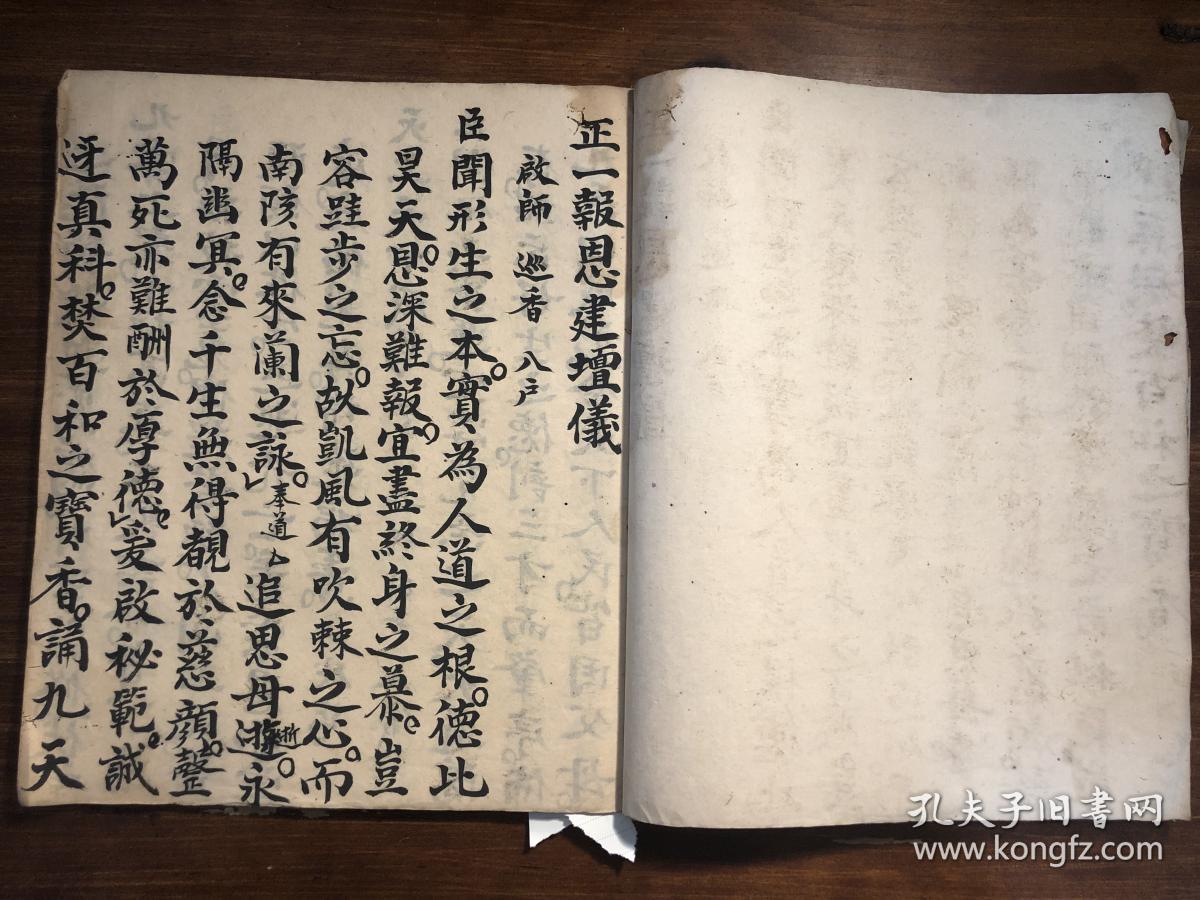 正一報恩建壇儀
啟師 巡香 八戶
臣聞形生之本。實為人道之根。德比
昊天。恩深難報。宜盡終身之慕。豈
容跬步之忘。故凱風有吹棘之心。而
南陔有來蘭之詠。奉道 追思母逝。永
隔幽冥。念千生無得覩於慈顏。整
萬死亦難酬於厚德。爰啟秘範。誠
迓真科。焚百和之寶香。誦九天
孔夫子旧书网
www.kongfz.com